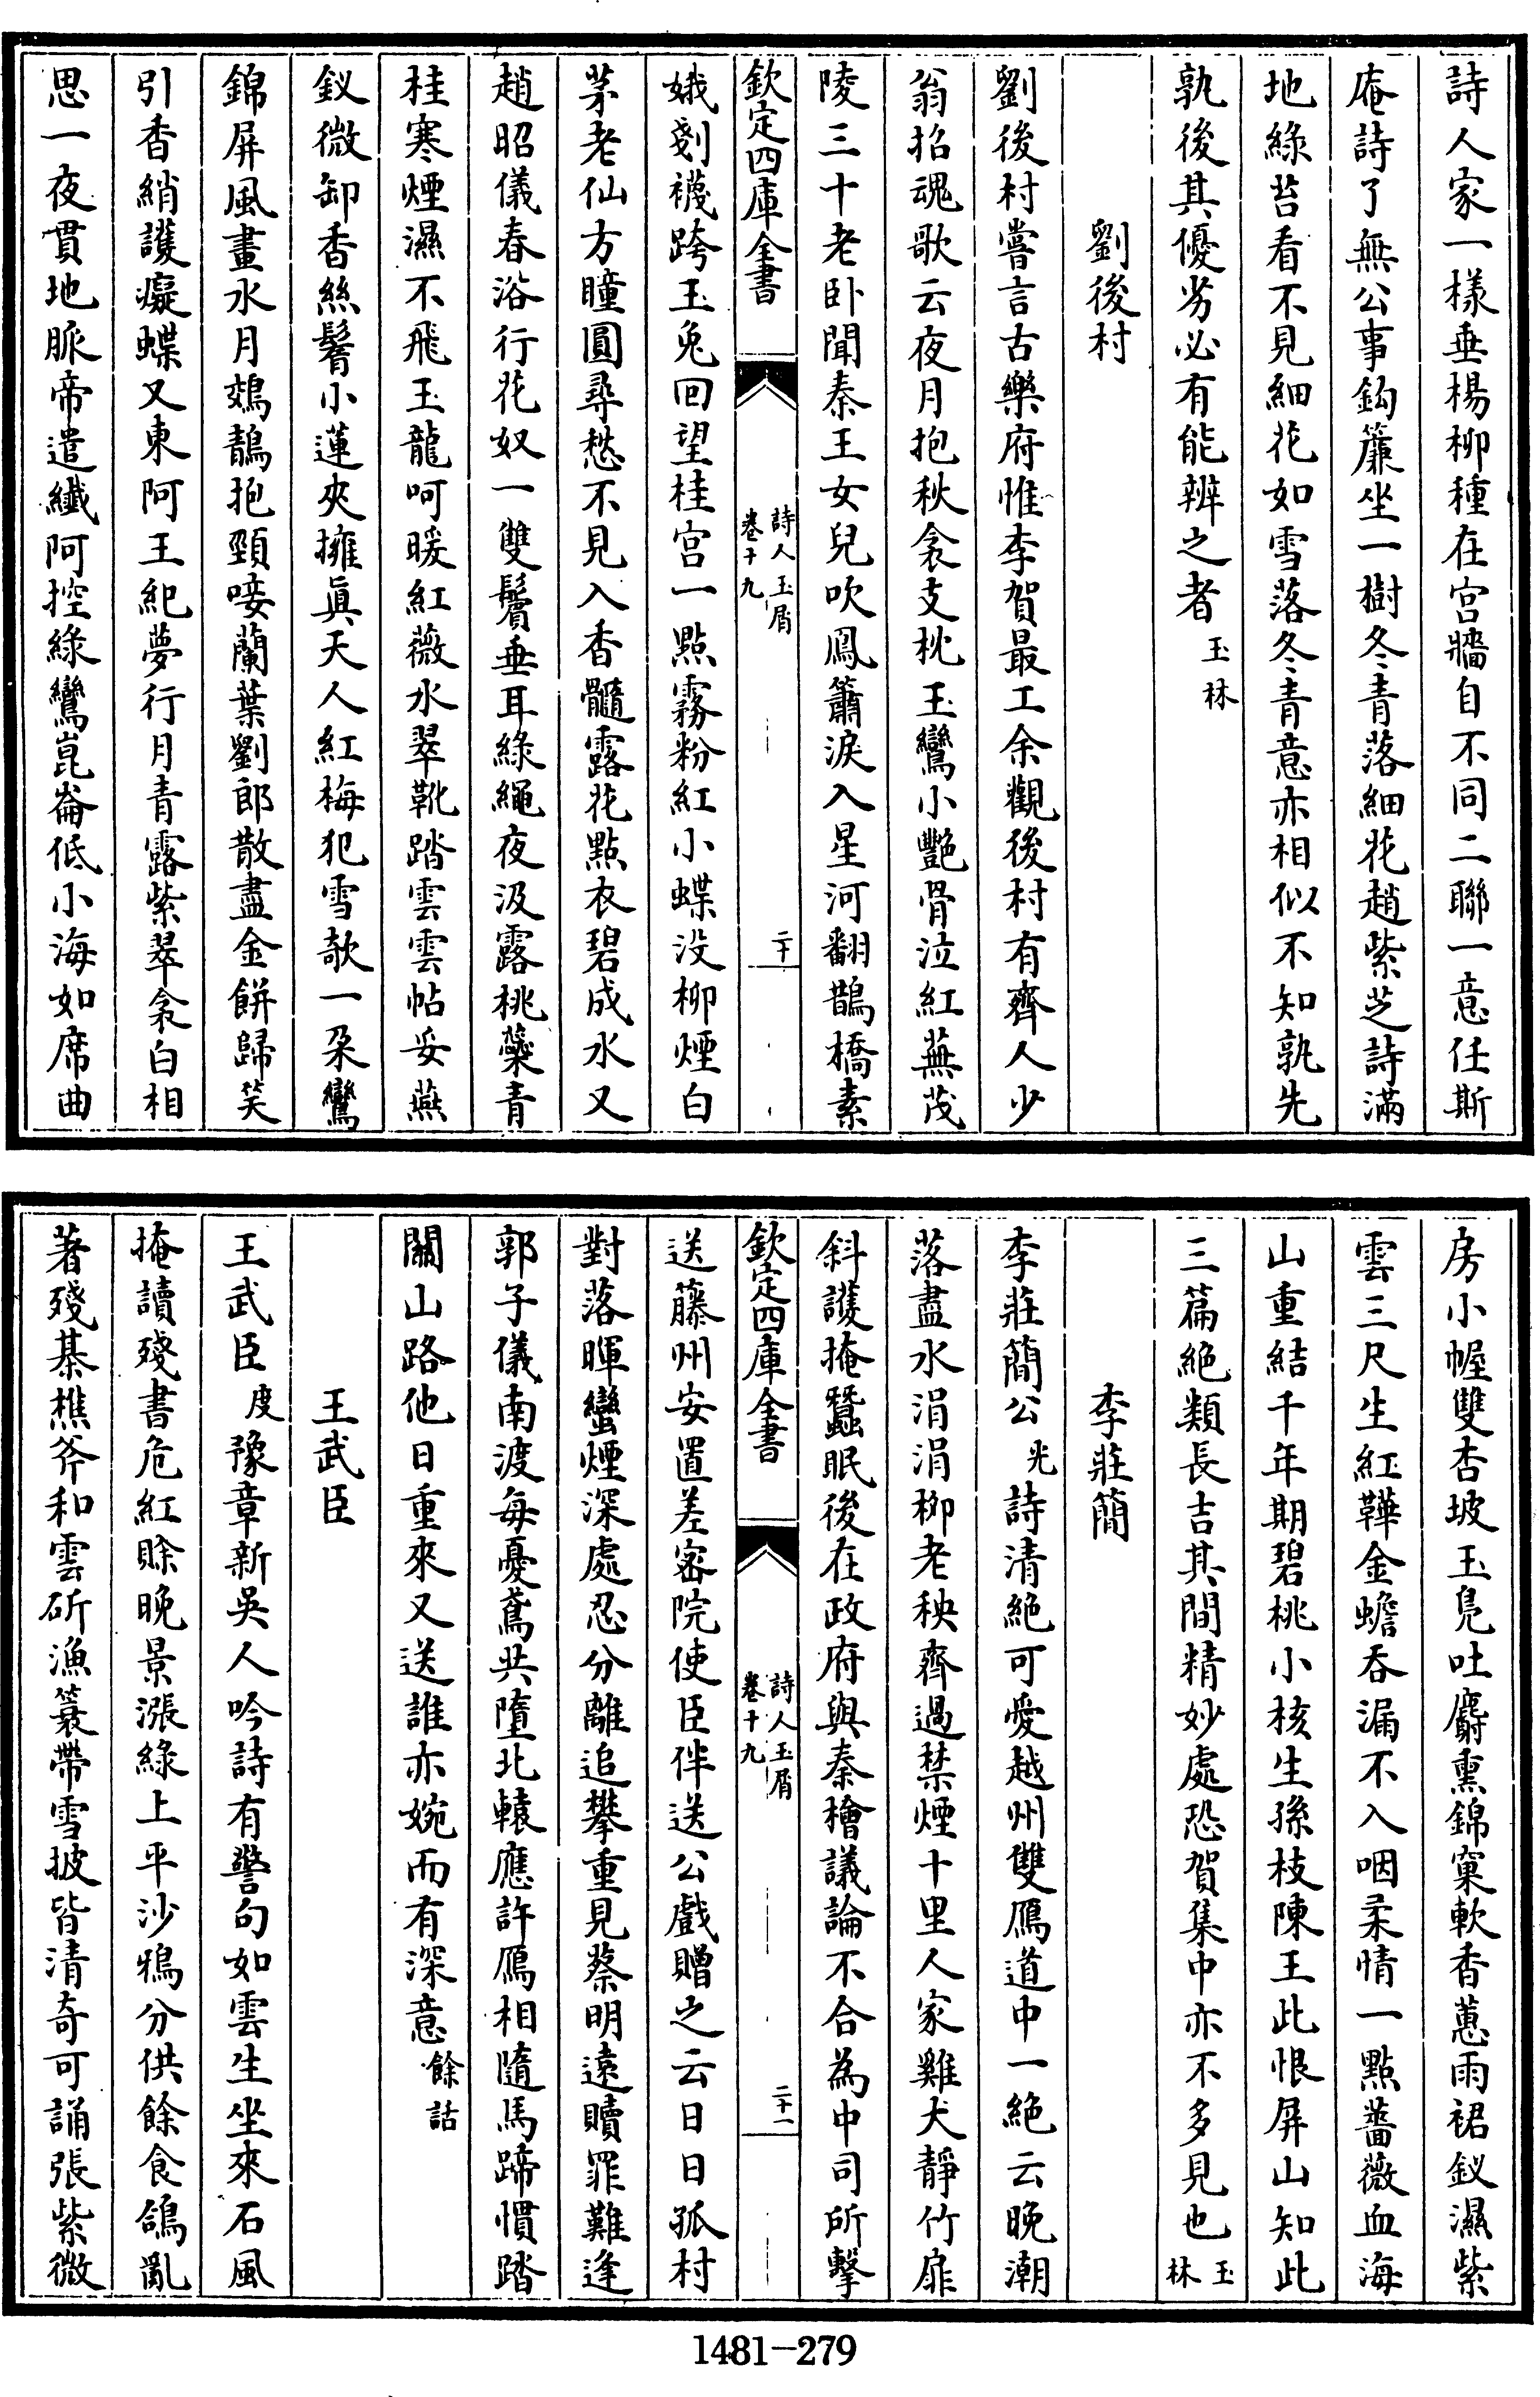 詩人家一樣垂楊柳種在宮牆自不同二聯一意任斯
庵詩了無公事鈎簾坐一樹冬青落細花趙紫芝詩滿
地綠苔看不見細花如雪落冬青意亦相似不知孰先
孰後其優劣必有能辨之者玉林
劉後村
劉後村嘗言古樂府惟李賀最工余觀後村有齊人少
翁招魂歌云夜月抱秋衾支枕玉鸞小艷骨泣紅蕪茂
陵三十老卧聞秦王女兒吹鳳簫淚入星河翻鵲橋素
欽定四庫全書
詩人玉屑
卷十九
二十
娥剗襪跨玉兎回望桂宫一點霧粉紅小蝶没柳煙白
茅老仙方瞳圓尋愁不見入香髓露花點衣碧成水又
趙昭儀春浴行花奴一雙鬢垂耳綠繩夜汲露桃蘂青
桂寒煙濕不飛玉龍呵暖紅薇水翠靴踏雲雲帖妥燕
釵微卸香絲鬌小蓮夾擁眞天人紅梅犯雪欹一朶鸞
錦屏風畫水月鵁鶄抱頸唼蘭葉劉郎散盡金餅歸笑
引香綃護癡蝶又東阿王紀夢行月青露紫翠衾白相
思一夜貫地脈帝遣纖阿控綠鸞崑崙低小海如席曲
房小幄雙杏坡玉鳬吐麝熏錦窠軟香蕙雨裙釵濕紫
雲三尺生紅鞾金蟾吞漏不入咽柔情一點薔薇血海
山重結千年期碧桃小核生孫枝陳王此恨屏山知此
三篇絶類長吉其間精妙處恐賀集中亦不多見也玉林
李莊簡
李莊簡公光詩清絶可愛越州雙鴈道中一絶云晚潮
落盡水涓涓柳老秧齊過禁煙十里人家雞犬靜竹扉
斜護掩蠶眠後在政府與秦檜議論不合為中司所擊
欽定四庫全書
詩人玉屑
卷十九
二十一
送藤州安置差密院使臣伴送公戲贈之云日日孤村
對落暉蠻煙深處忍分離追攀重見蔡明遠贖罪難逢
郭子儀南渡每憂鳶共墮北轅應許鴈相隨馬蹄慣踏
關山路他日重來又送誰亦婉而有深意餘話
王武臣
王武臣度豫章新吳人吟詩有警句如雲生坐來石風
掩讀殘書危紅賒晚景漲綠上平沙鴉分供餘食鴿亂
著殘棊樵斧和雲斫漁簑帶雪披皆清奇可誦張紫微
1481-279